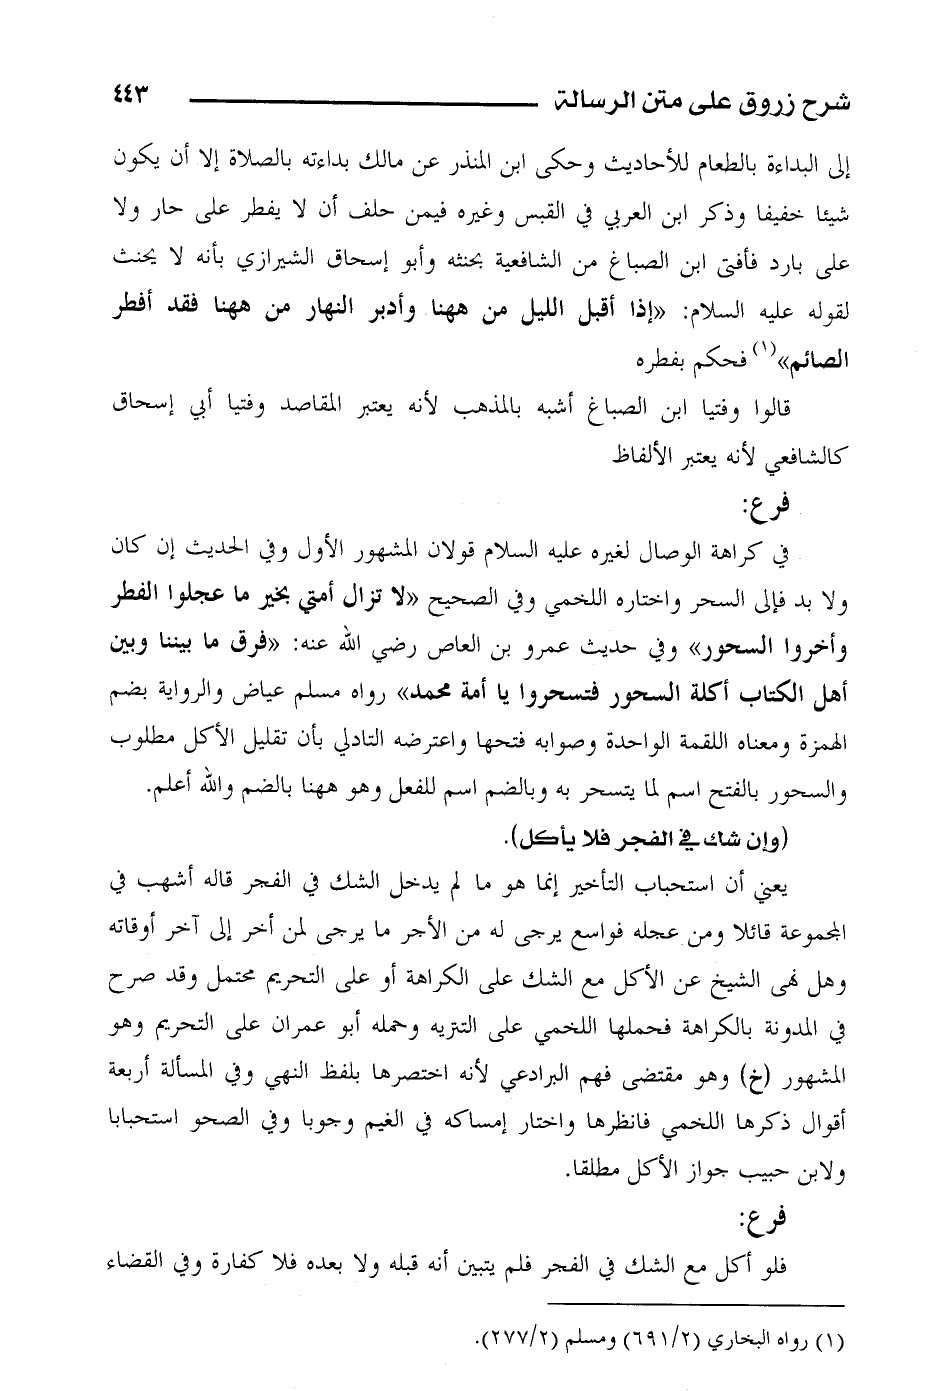 شرح زروق على متن الرسالة ٤٤٣
إلى البداءة بالطعام للأحاديث وحكى ابن المنذر عن مالك بداءته بالصلاة إلا أن يكون
شيئا خفيفا وذكر ابن العربي في القبس وغيره فيمن حلف أن لا يفطر على حار ولا
على بارد فأفتى ابن الصباغ من الشافعية بحنثه وأبو إسحاق الشيرازي بأنه لا يحنث
لقوله عليه السلام: «إذا أقبل الليل من ههنا وأدبر النهار من ههنا فقد أفطر
الصائم»(١) فحكم بفطره
قالوا وفتيا ابن الصباغ أشبه بالمذهب لأنه يعتبر المقاصد وفتيا أبي إسحاق
كالشافعي لأنه يعتبر الألفاظ
فرع:
في كراهة الوصال لغيره عليه السلام قولان المشهور الأول وفي الحديث إن كان
ولا بد فإلى السحر واختاره اللخمي وفي الصحيح «لا تزال أمتي بخير ما عجلوا الفطر
وأخروا السحور» وفي حديث عمرو بن العاص رضي الله عنه: «فرق ما بيننا وبين
أهل الكتاب أكلة السحور فتسحروا يا أمة محمد» رواه مسلم عياض والرواية بضم
الهمزة ومعناه اللقمة الواحدة وصوابه فتحها واعترضه التادلي بأن تقليل الأكل مطلوب
والسحور بالفتح اسم لما يتسحر به وبالضم اسم للفعل وهو ههنا بالضم والله أعلم.
(وإن شك في الفجر فلا يأكل).
يعني أن استحباب التأخير إنما هو ما لم يدخل الشك في الفجر قاله أشهب في
المجموعة قائلا ومن عجله فواسع يرجى له من الأجر ما يرجى لمن أخر إلى آخر أوقاته
وهل نهى الشيخ عن الأكل مع الشك على الكراهة أو على التحريم محتمل وقد صرح
في المدونة بالكراهة فحملها اللخمي على التنزيه وحمله أبو عمران على التحريم وهو
المشهور (خ) وهو مقتضى فهم البرادعي لأنه اختصرها بلفظ النهي وفي المسألة أربعة
أقوال ذكرها اللخمي فانظرها واختار إمساكه في الغيم وجوبا وفي الصحو استحبابا
ولابن حبيب جواز الأكل مطلقا.
فرع:
فلو أكل مع الشك في الفجر فلم يتبين أنه قبله ولا بعده فلا كفارة وفي القضاء
(١) رواه البخاري (٦٩١/٢) ومسلم (٢٧٧/٢).